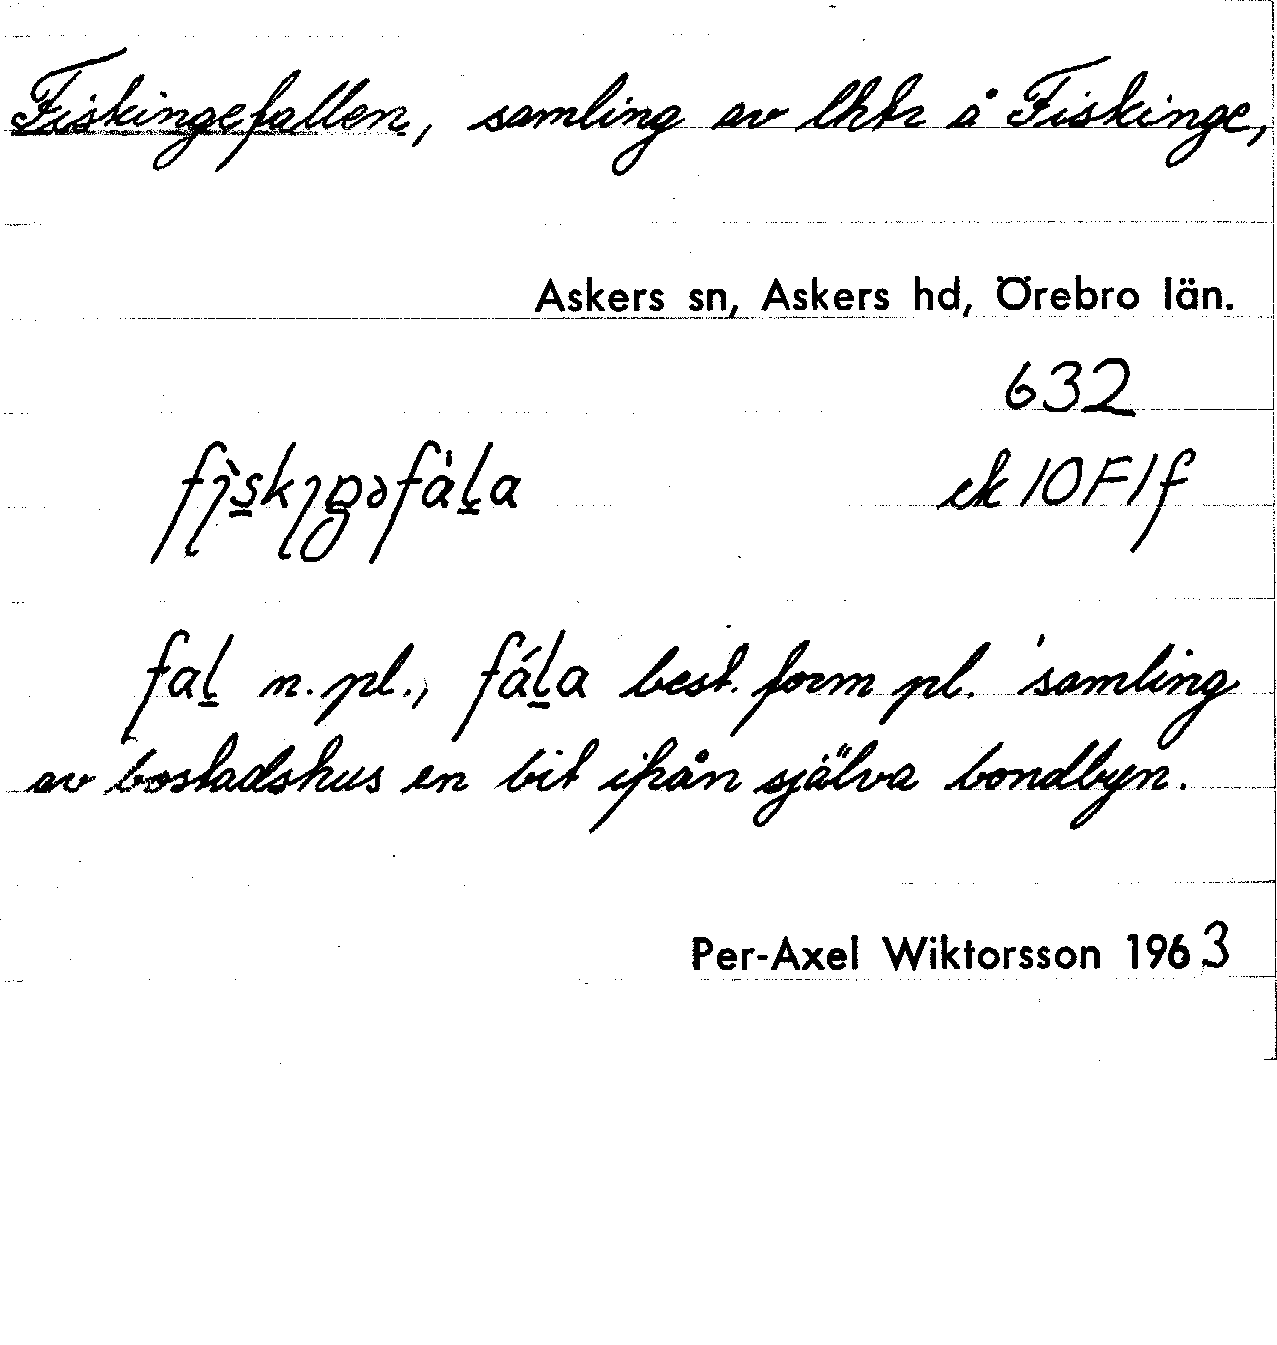 Fiskingefallen, samling av lhtr å Fiskinge,
Askers sn, Askers hd, Örebro län.
632
ek 10F1f
fal n. pl., fála best. form pl. 'samling
av bostadshus en bit ifrån själva bondbyn.
Per-Axel Wiktorsson 1963